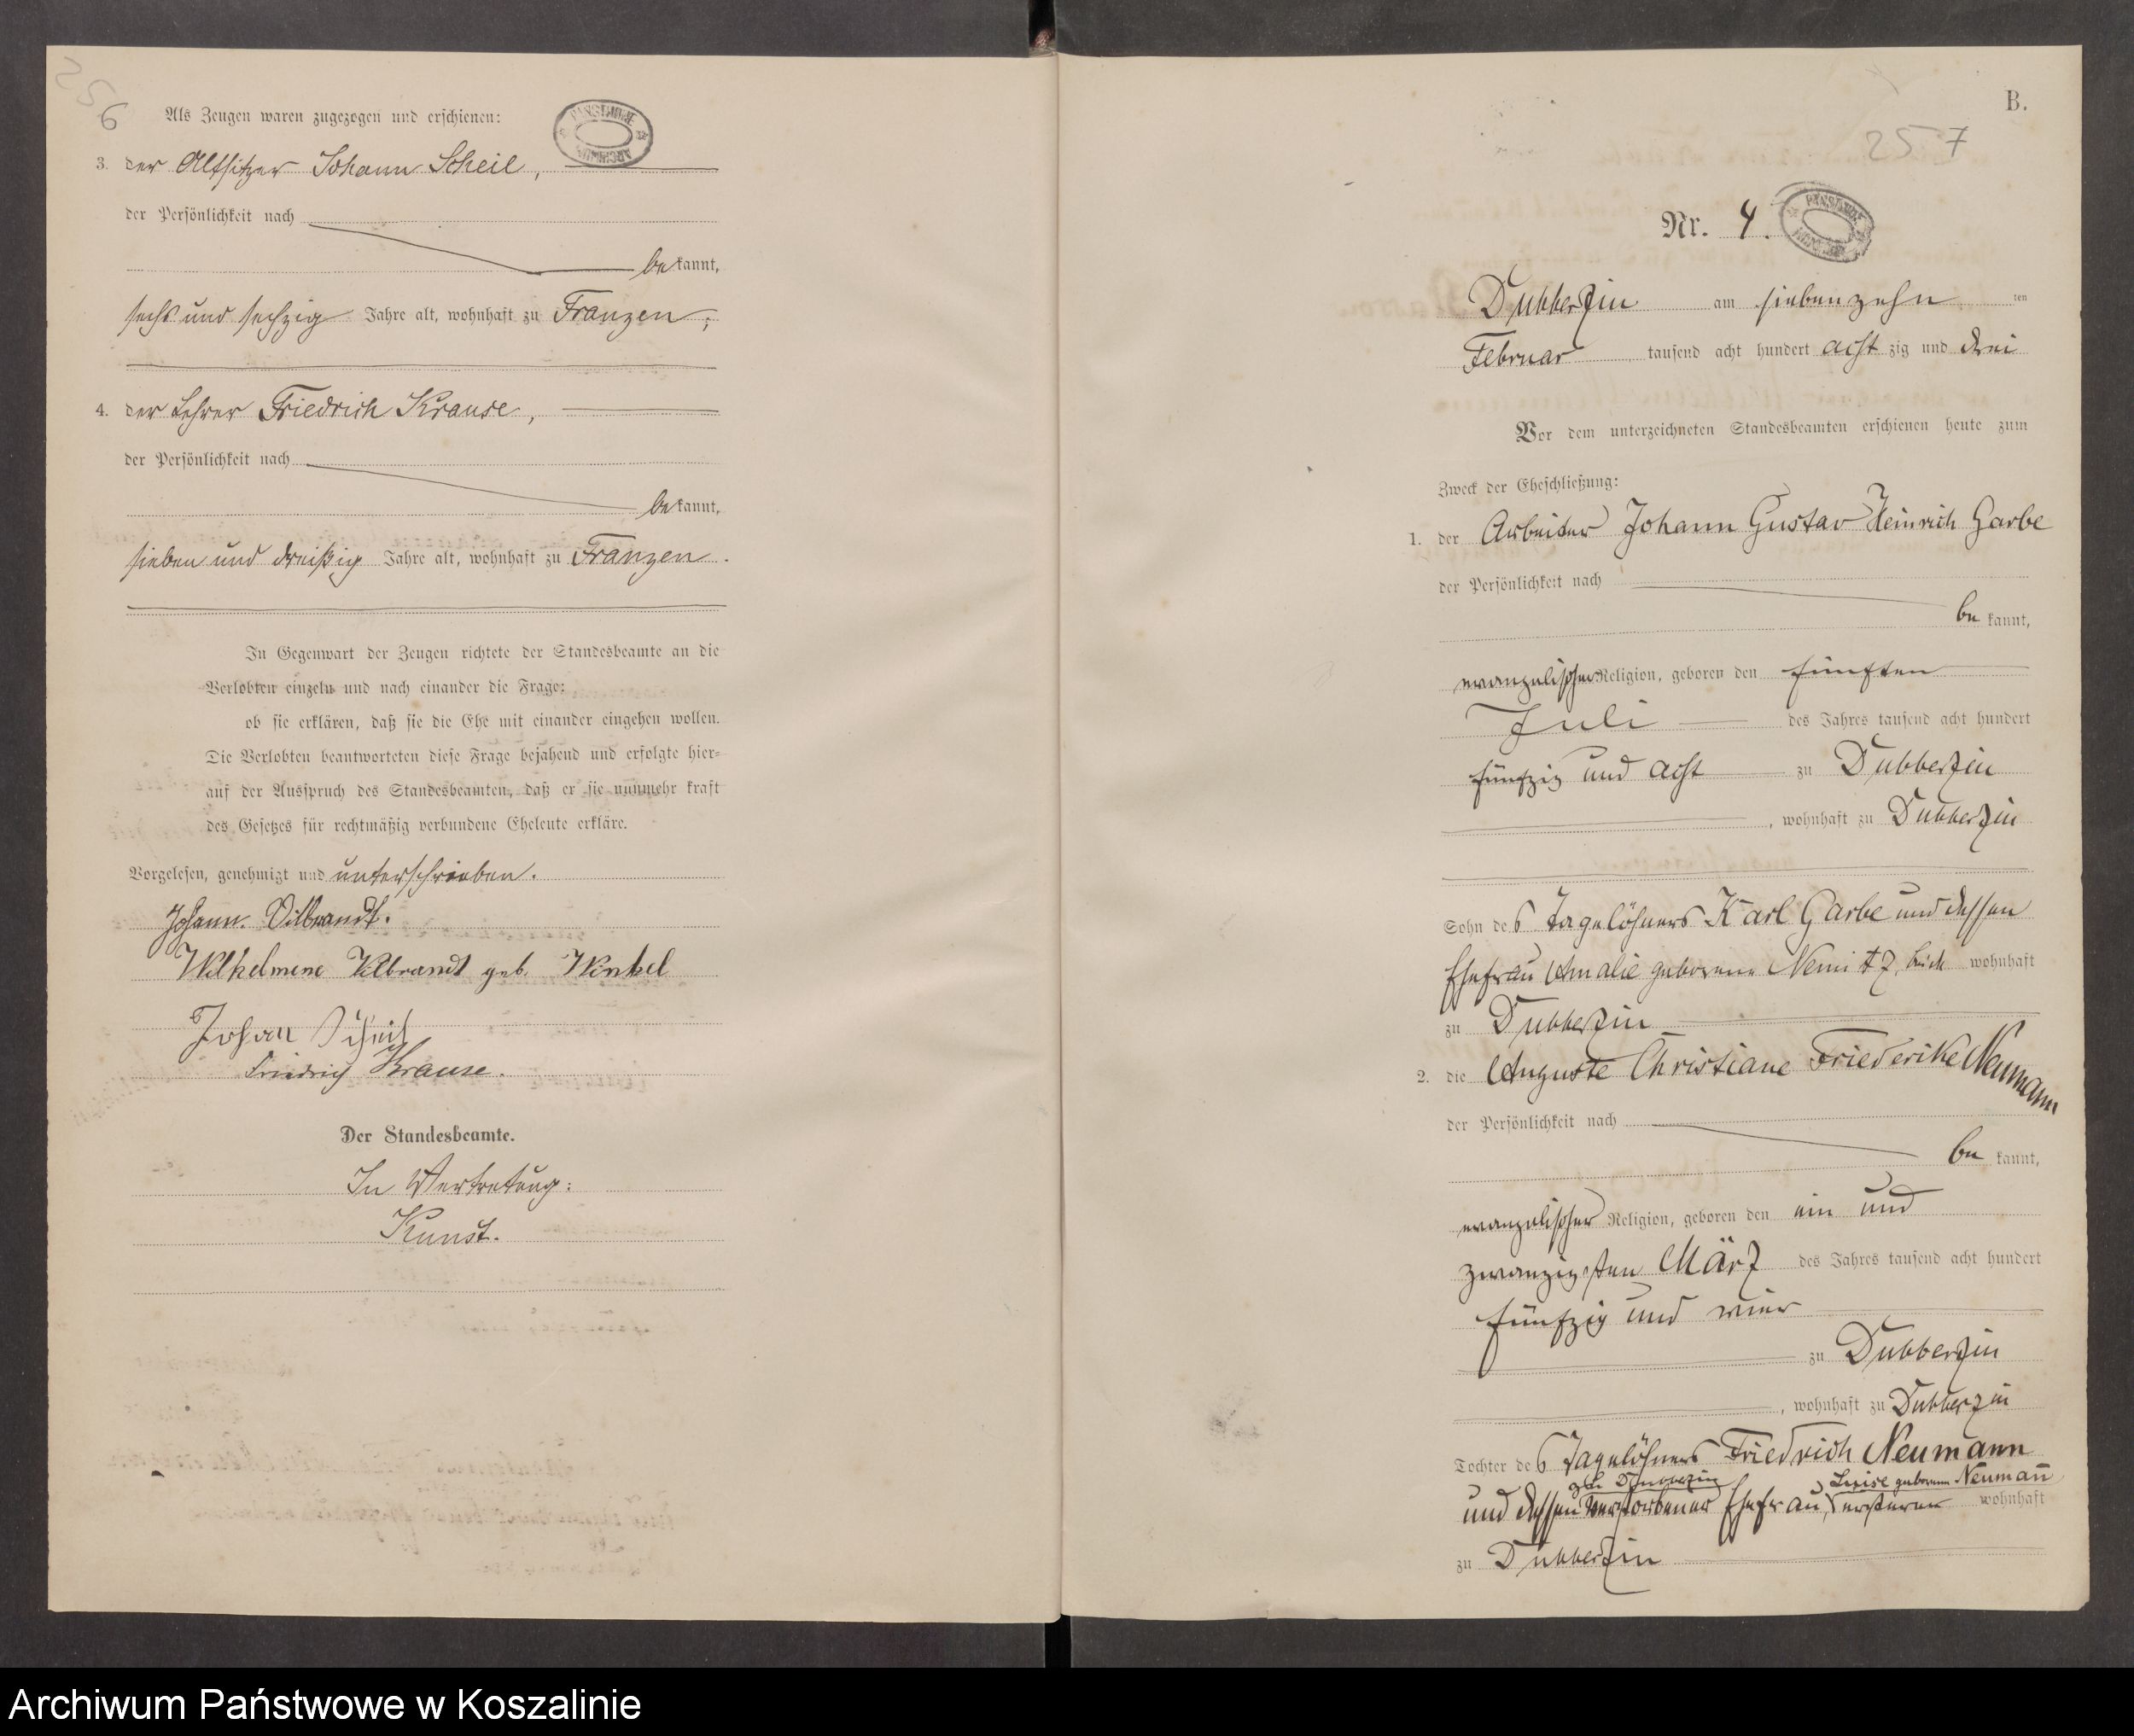 256
Als Zeugen waren zugezogen und erschienen:
PAŃSTWOWE ARCHIWUM
3. der Altsitzer Johann Scheil,
der Persönlichkeit nach
bekannt,
sechs und sechzig Jahre alt, wohnhaft zu Franzen,
4. der Lehrer Friedrich Krause,
der Persönlichkeit nach
bekannt,
sieben und dreißig Jahre alt, wohnhaft zu Franzen.
In Gegenwart der Zeugen richtete der Standesbeamte an die
Verlobten einzeln und nach einander die Frage:
ob sie erklären, daß sie die Ehe mit einander eingehen wollen.
Die Verlobten beantworteten diese Frage bejahend und erfolgte hier=
auf der Ausspruch des Standesbeamten, daß er sie nunmehr kraft
des Gesetzes für rechtmäßig verbundene Eheleute erkläre.
Vorgelesen, genehmigt und unterschrieben.
Johann Vilbrandt.
Wilhelmene Vilbrandt geb. Winkel
Johan Scheil
Friedrich Krause.
Der Standesbeamte.
In Vertretung:
Kunst.
B.
257
Nr. 4.
PAŃSTWOWE ARCHIWUM
Dubberzin am siebenzehn ten
Februar tausend acht hundert achtzig und drei
Vor dem unterzeichneten Standesbeamten erschienen heute zum
Zweck der Eheschließung:
1. der Arbeiter Johann Gustav Heinrich Garbe
der Persönlichkeit nach
be kannt,
evangelischer Religion, geboren den fünften
Juli des Jahres tausend acht hundert
fünfzig und acht zu Dubberzin
, wohnhaft zu Dubberzin
Sohn des Tagelöhners Karl Garbe und dessen
Ehefrau Amalie geborene Nemitz, beide wohnhaft
zu Dubberzin
2. die Auguste Christiane Friederike Neumann
der Persönlichkeit nach
be kannt,
evangelischer Religion, geboren den ein und
zwanzigsten März des Jahres tausend acht hundert
fünfzig und vier
zu Dubberzin
, wohnhaft zu Dubberzin
Tochter des Tagelöhners Friedrich Neumann
zu Dubberzin Luise geborene Neumann
und dessen verstorbener Ehefrau, ersterer wohnhaft
zu Dubberzin
Archiwum Państwowe w Koszalinie